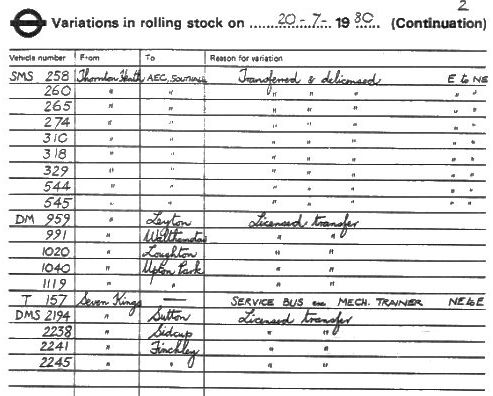 2
Variations in rolling stock on 20-7- 1980 (Continuation)
Vehicle number From To Reason for variation
SMS 258 Thornton Heath AEC, Southall Transferred & delicensed E to NE
260 " " " " " " "
265 " " " " " " "
274 " " " " " " "
310 " " " " " " "
318 " " " " " " "
329 " " " " " " "
544 " " " " " " "
545 " " " " " " "
DM 959 " Leyton Licensed transfer
991 " Walthamstow " "
1020 " Loughton " "
1040 " Upton Park " "
1119 " " " "
T 157 Seven Kings — SERVICE BUS exc MECH. TRAINER NE to E
DMS 2194 " Sutton Licensed transfer
2238 " Sidcup " "
2241 " Finchley " "
2245 " " " "